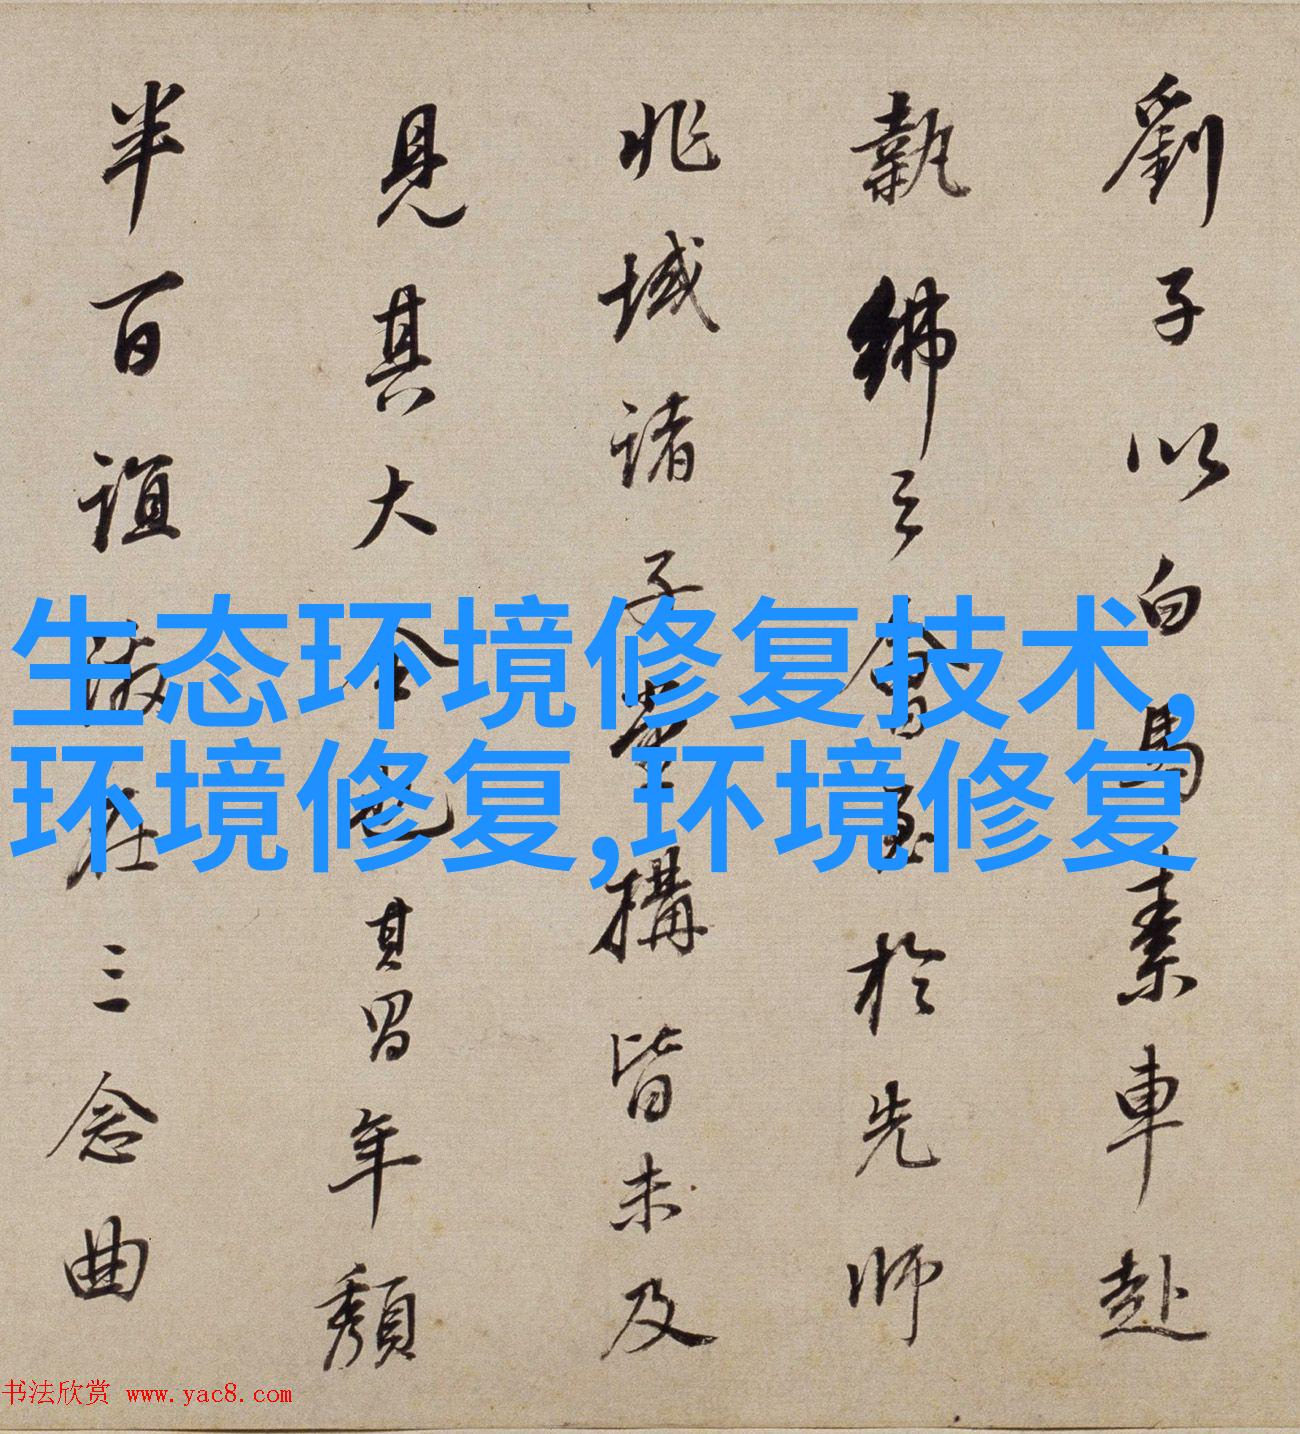 劉子以白馬素車赴
執紼之會於先師
兆域諸子堂構皆未及
見其大全也其年頹
半百誼激在三念曲
生态环境修复技术,
环境修复,环境修复
书法欣赏 www.yac8.com